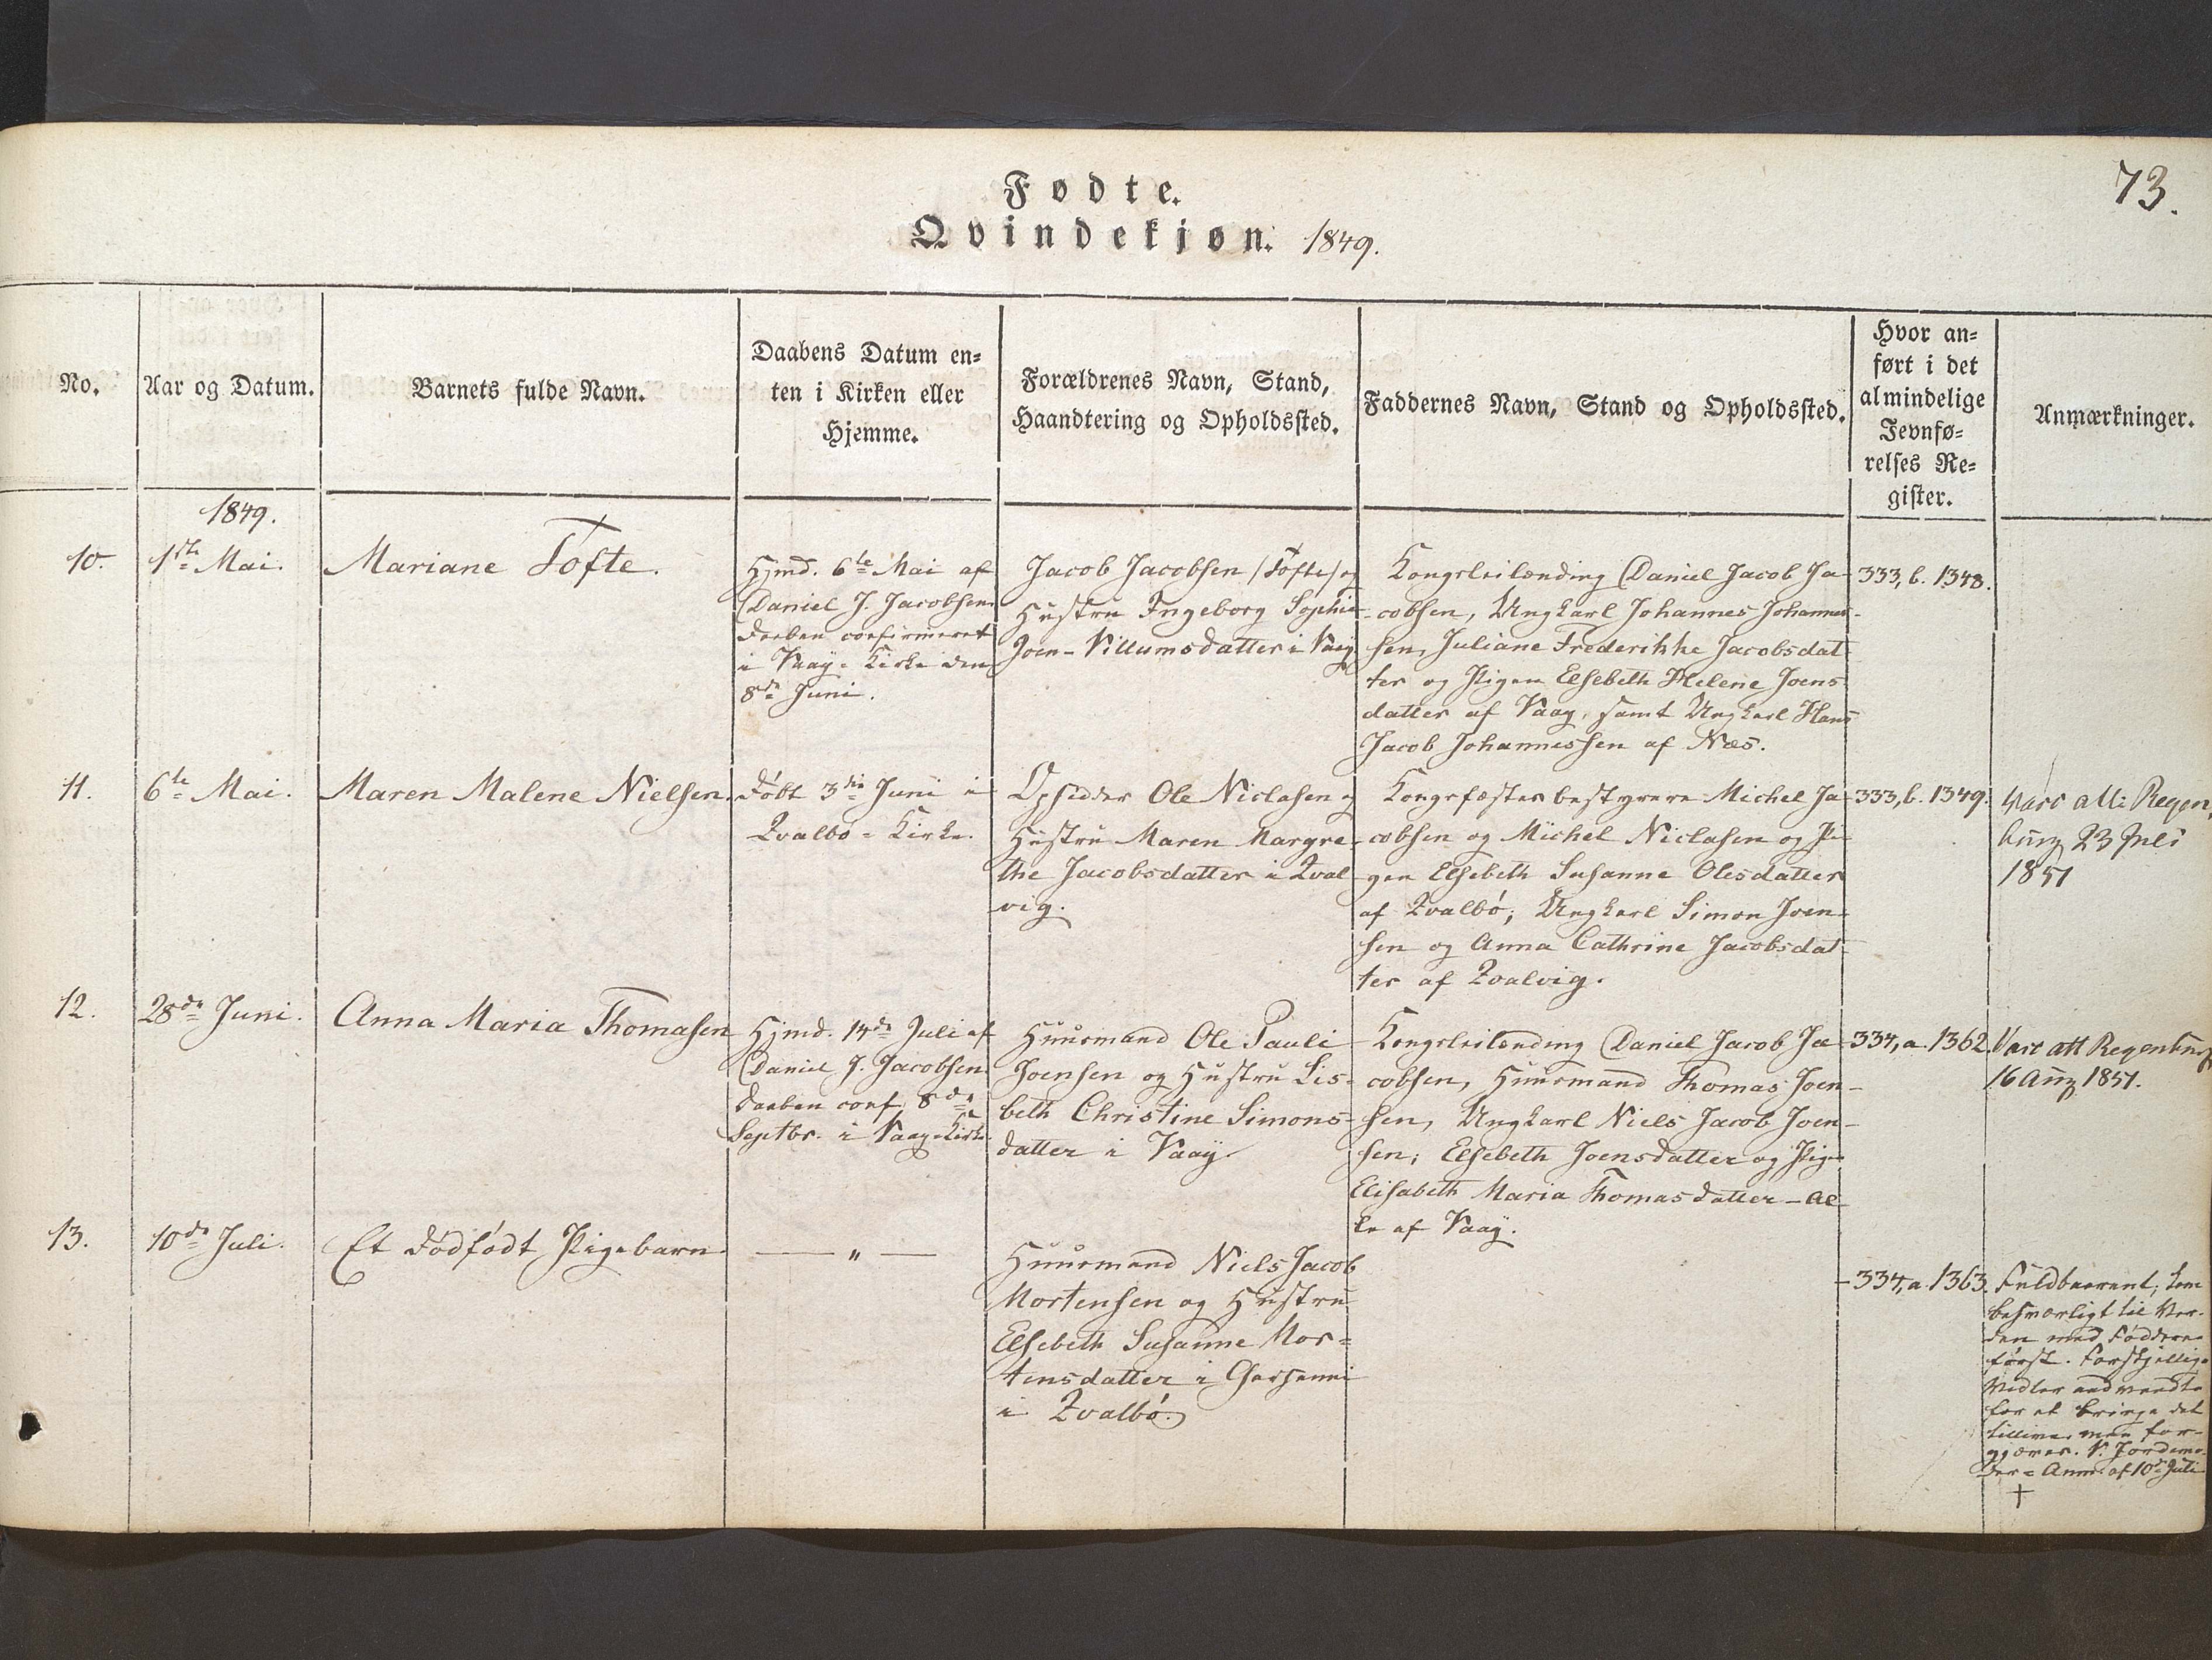 73.
Fødte.
Qvindekjøn. 1849.
No.
Aar og Datum.
Barnets fulde Navn.
Daabens Datum en-
ten i Kirken eller
Hjemme.
Forældrenes Navn, Stand,
Haandtering og Opholdssted.
Faddernes Navn, Stand og Opholdssted.
Hvor an-
ført i det
almindelige
Jevnfø-
relses Re-
gister.
Anmærkninger.
1849.
10.
1ste Mai.
Mariane Tofte.
Hjmd. 6te Mai af
Daniel J. Jacobsen
Daaben confirmeret
i Vaag-Kirke den
8de Juni.
Jacob Jacobsen /Tofte/ og
Hustru Ingeborg Sophie
Joen-Villumsdatter i Vaag
Kongsleilænding Daniel Jacob Ja-
cobsen, Ungkarl Johannes Johannes-
sen, Juliane Frederikke Jacobsdat-
ter og Pigen Elsebeth Helene Joens-
datter af Vaag, samt Ungkarl Hans
Jacob Johannessen af Næs.
333, b. 1348.
11.
6te Mai.
Maren Malene Nielsen.
Døbt 3die Juni i
Qvalbø-Kirke.
Opsidder Ole Niclasen og
Hustru Maren Margre-
the Jacobsdatter i Qval-
vig.
Kongsfæster bestyrere Michel Ja-
cobsen og Michel Niclasen og Pi-
gen Elsebeth Susanne Olesdatter
af Qvalbø; Ungkarl Simon Joen-
sen og Anna Cathrine Jacobsdat-
ter af Qvalvig.
333, b. 1349.
23 Juli
1851
12.
28de Juni.
Anna Maria Thomasen
Hjmd. 14de Juli af
Daniel J. Jacobsen
Daaben conf. 8de
Septbr. i Vaag-Kirke.
Huusmand Ole Pauli
Joensen og Hustru Lis-
beth Christine Simons-
datter i Vaag.
Kongsleilænding Daniel Jacob Ja-
cobsen, Huusmand Thomas Joen-
sen, Ungkarl Niels Jacob Joen-
sen; Elsebeth Joensdatter og Pige
Elisabeth Maria Thomasdatter - Al-
le af Vaag.
334, a. 1362.
16 Aug 1851.
13.
10de Juli.
Et dødfødt Pigebarn
— " —
Huusmand Niels Jacob
Mortensen og Hustru
Elsebeth Susanne Mor-
tensdatter i
i Qvalbø.
334, a. 1363.
Fuldbaarent; kom
besværligt til Ver-
den med Fødderne
først. Forskjellige
Midler anvendte
for at bringe det
tillive, men for-
gjæves. V. Jordemo-
der-Anm. af 10de Juli
+